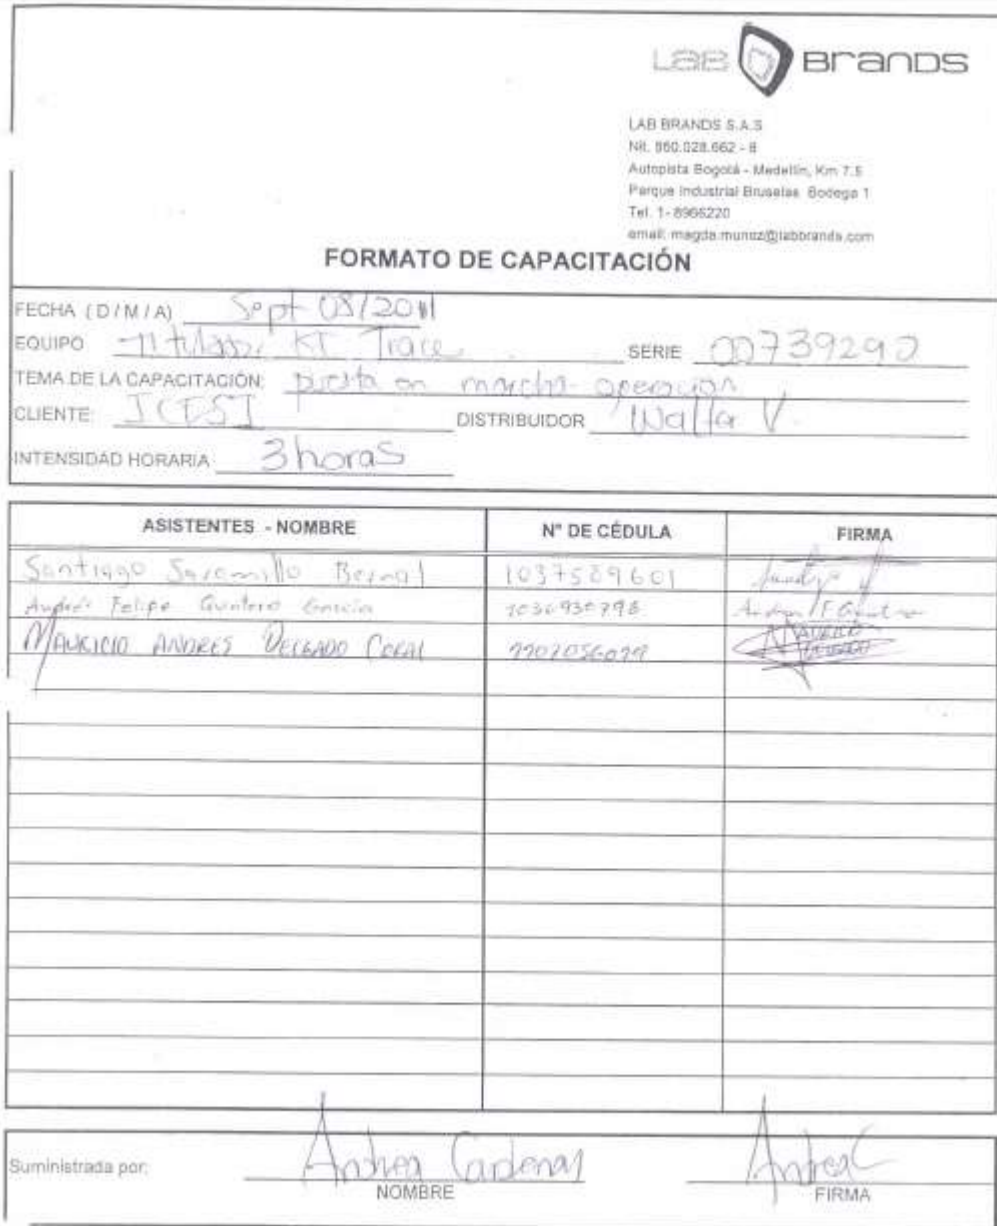 LAB Brands
LAB BRANDS S.A.S
Nit. 860.028.662 - 8
Autopista Bogotá - Medellín, Km 7.5
Parque Industrial Bruselas Bodega 1
Tel. 1- 8966220
email: magda.munoz@labbrands.com
FORMATO DE CAPACITACIÓN
FECHA (D/M/A) Sept 08/2011
EQUIPO Titulador KF Trace SERIE 00739290
TEMA DE LA CAPACITACIÓN: puesta en marcha - operación
CLIENTE: ICESI DISTRIBUIDOR Walter V.
INTENSIDAD HORARIA 3 horas
ASISTENTES - NOMBRE N° DE CÉDULA FIRMA
Santiago Jaramillo Bernal 1037589601
Andrés Felipe Quintero García 1036930798 Andres F. Quintero
MAURICIO ANDRES DELGADO CORAL MAURICIO DELGADO
Suministrada por: Andrea Cardenas AndreaC
NOMBRE FIRMA